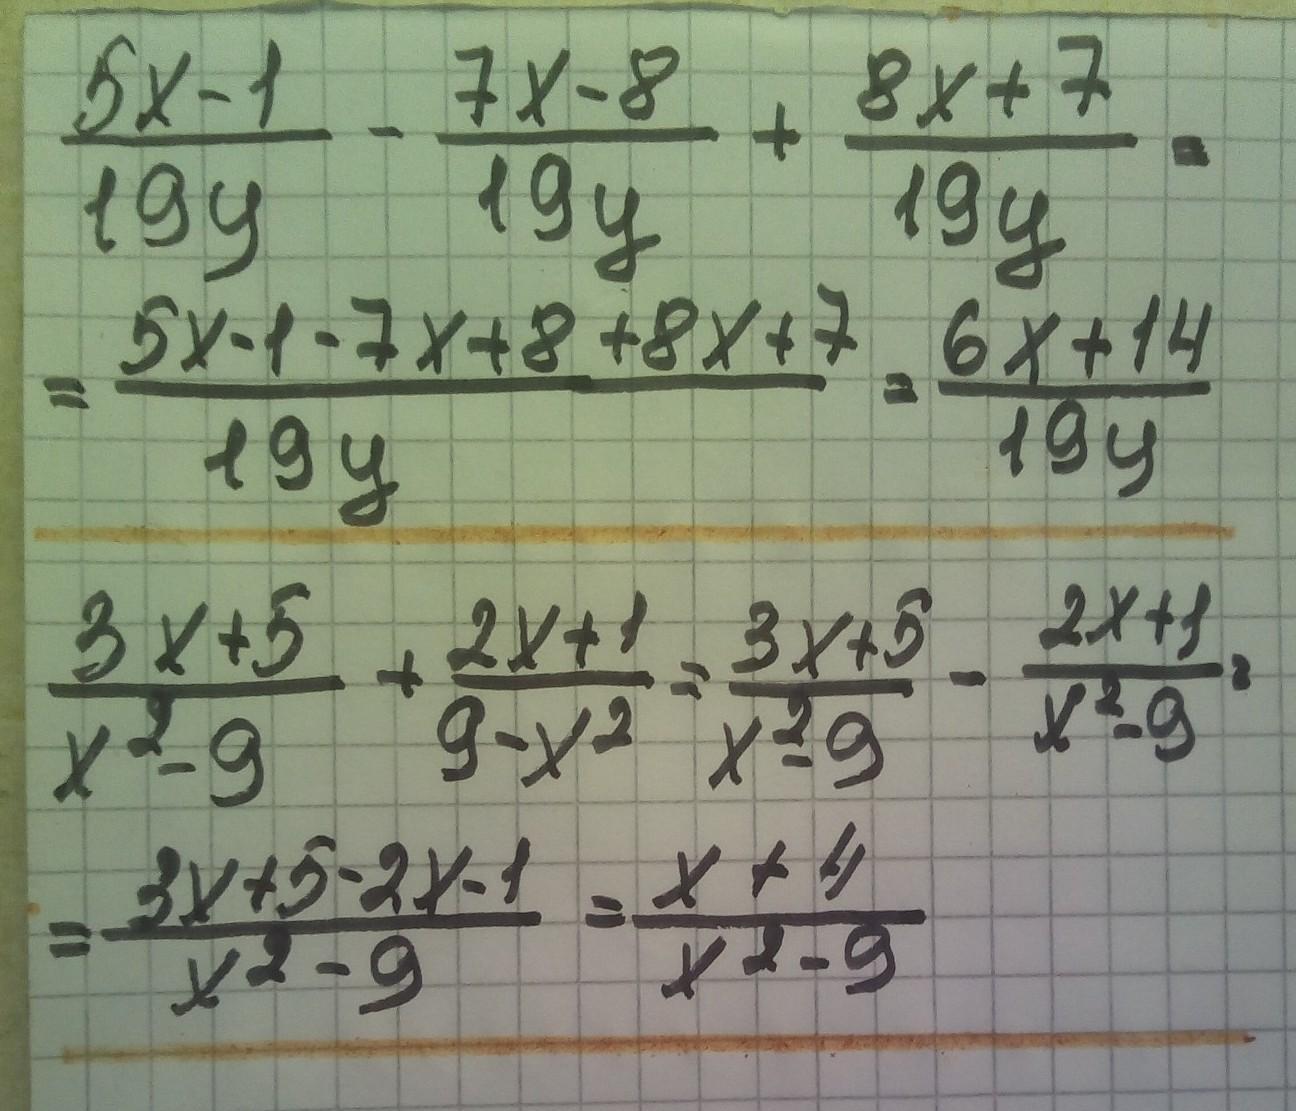 5x-1/19y - 7x-8/19y + 8x+7/19y =
= 5x-1-7x+8+8x+7/19y = 6x+14/19y
3x+5/x²-9 + 2x+1/9-x² = 3x+5/x²-9 - 2x+1/x²-9 =
= 3x+5-2x-1/x²-9 = x+4/x²-9